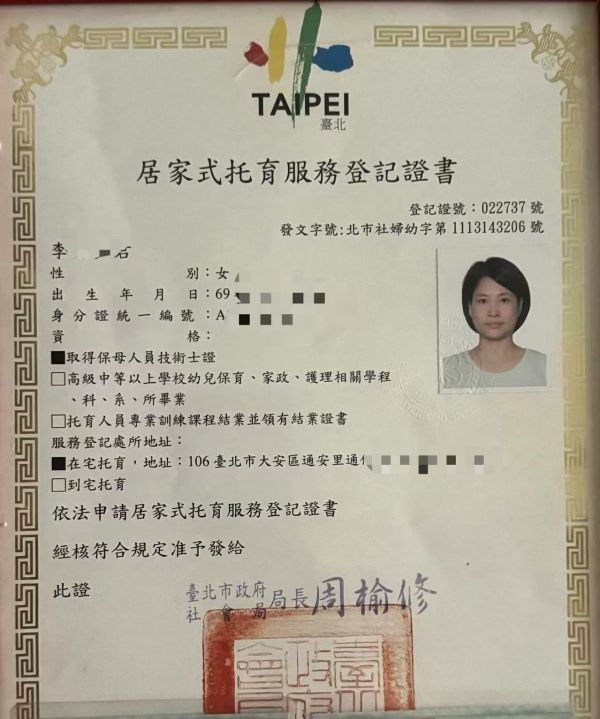 TAIPEI
臺北
居家式托育服務登記證書
登記證號：022737 號
發文字號:北市社婦幼字第 1113143206 號
李 石
性別：女
出生年月日：69
身分證統一編號：A
資格：
■取得保母人員技術士證
□高級中等以上學校幼兒保育、家政、護理相關學程
、科、系、所畢業
□托育人員專業訓練課程結業並領有結業證書
服務登記處所地址：
■在宅托育，地址：106 臺北市大安區通安里通
□到宅托育
依法申請居家式托育服務登記證書
經核符合規定准予發給
此證
臺北市政府
社會局
局長周榆修